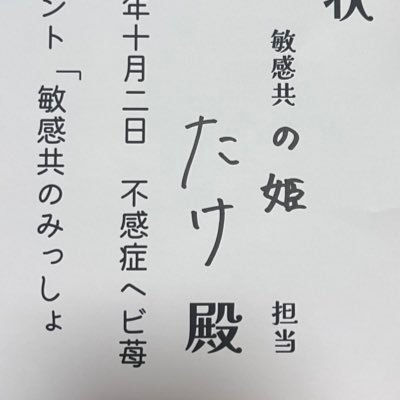 状
敏感共の姫 担当
たけ殿
年十月二日 不感症ヘビ苺
ント「敏感共のみっしょ